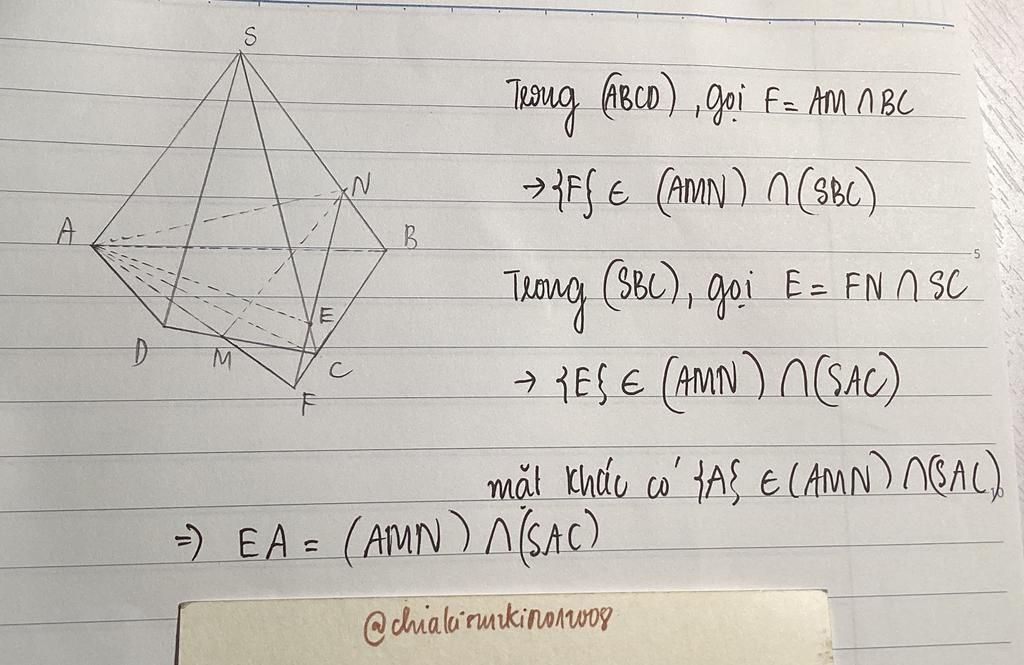 S
N
A
B
E
D
M
C
F
Trong (ABCD), gọi F = AM ∩ BC
→ {F} ∈ (AMN) ∩ (SBC)
5
Trong (SBC), gọi E = FN ∩ SC
→ {E} ∈ (AMN) ∩ (SAC)
mặt khác có {A} ∈ (AMN) ∩ (SAC)
⇒ EA = (AMN) ∩ (SAC)